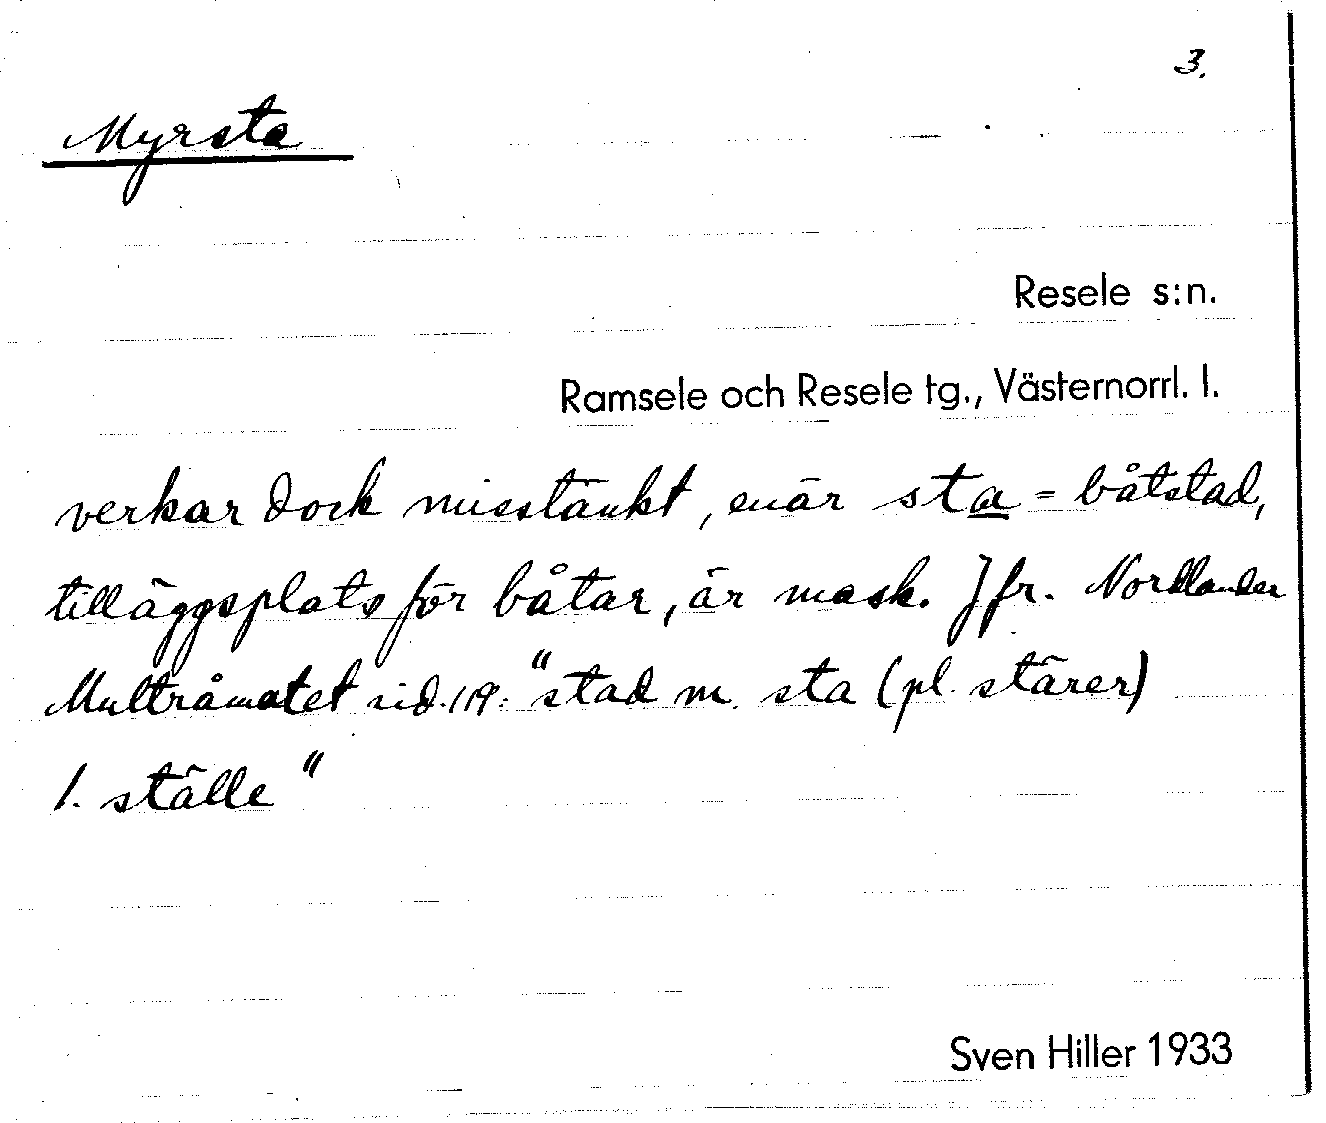 3.
Myrsta
Resele s:n.
Ramsele och Resele tg., Västernorrl. l.
verkar dock misstänkt, enär sta = båtstad,
tilläggsplats för båtar, är mask. Jfr. Nordlander
Multråmålet sid. 119: "stad m. sta (pl. stärer)
1. ställe"
Sven Hiller 1933